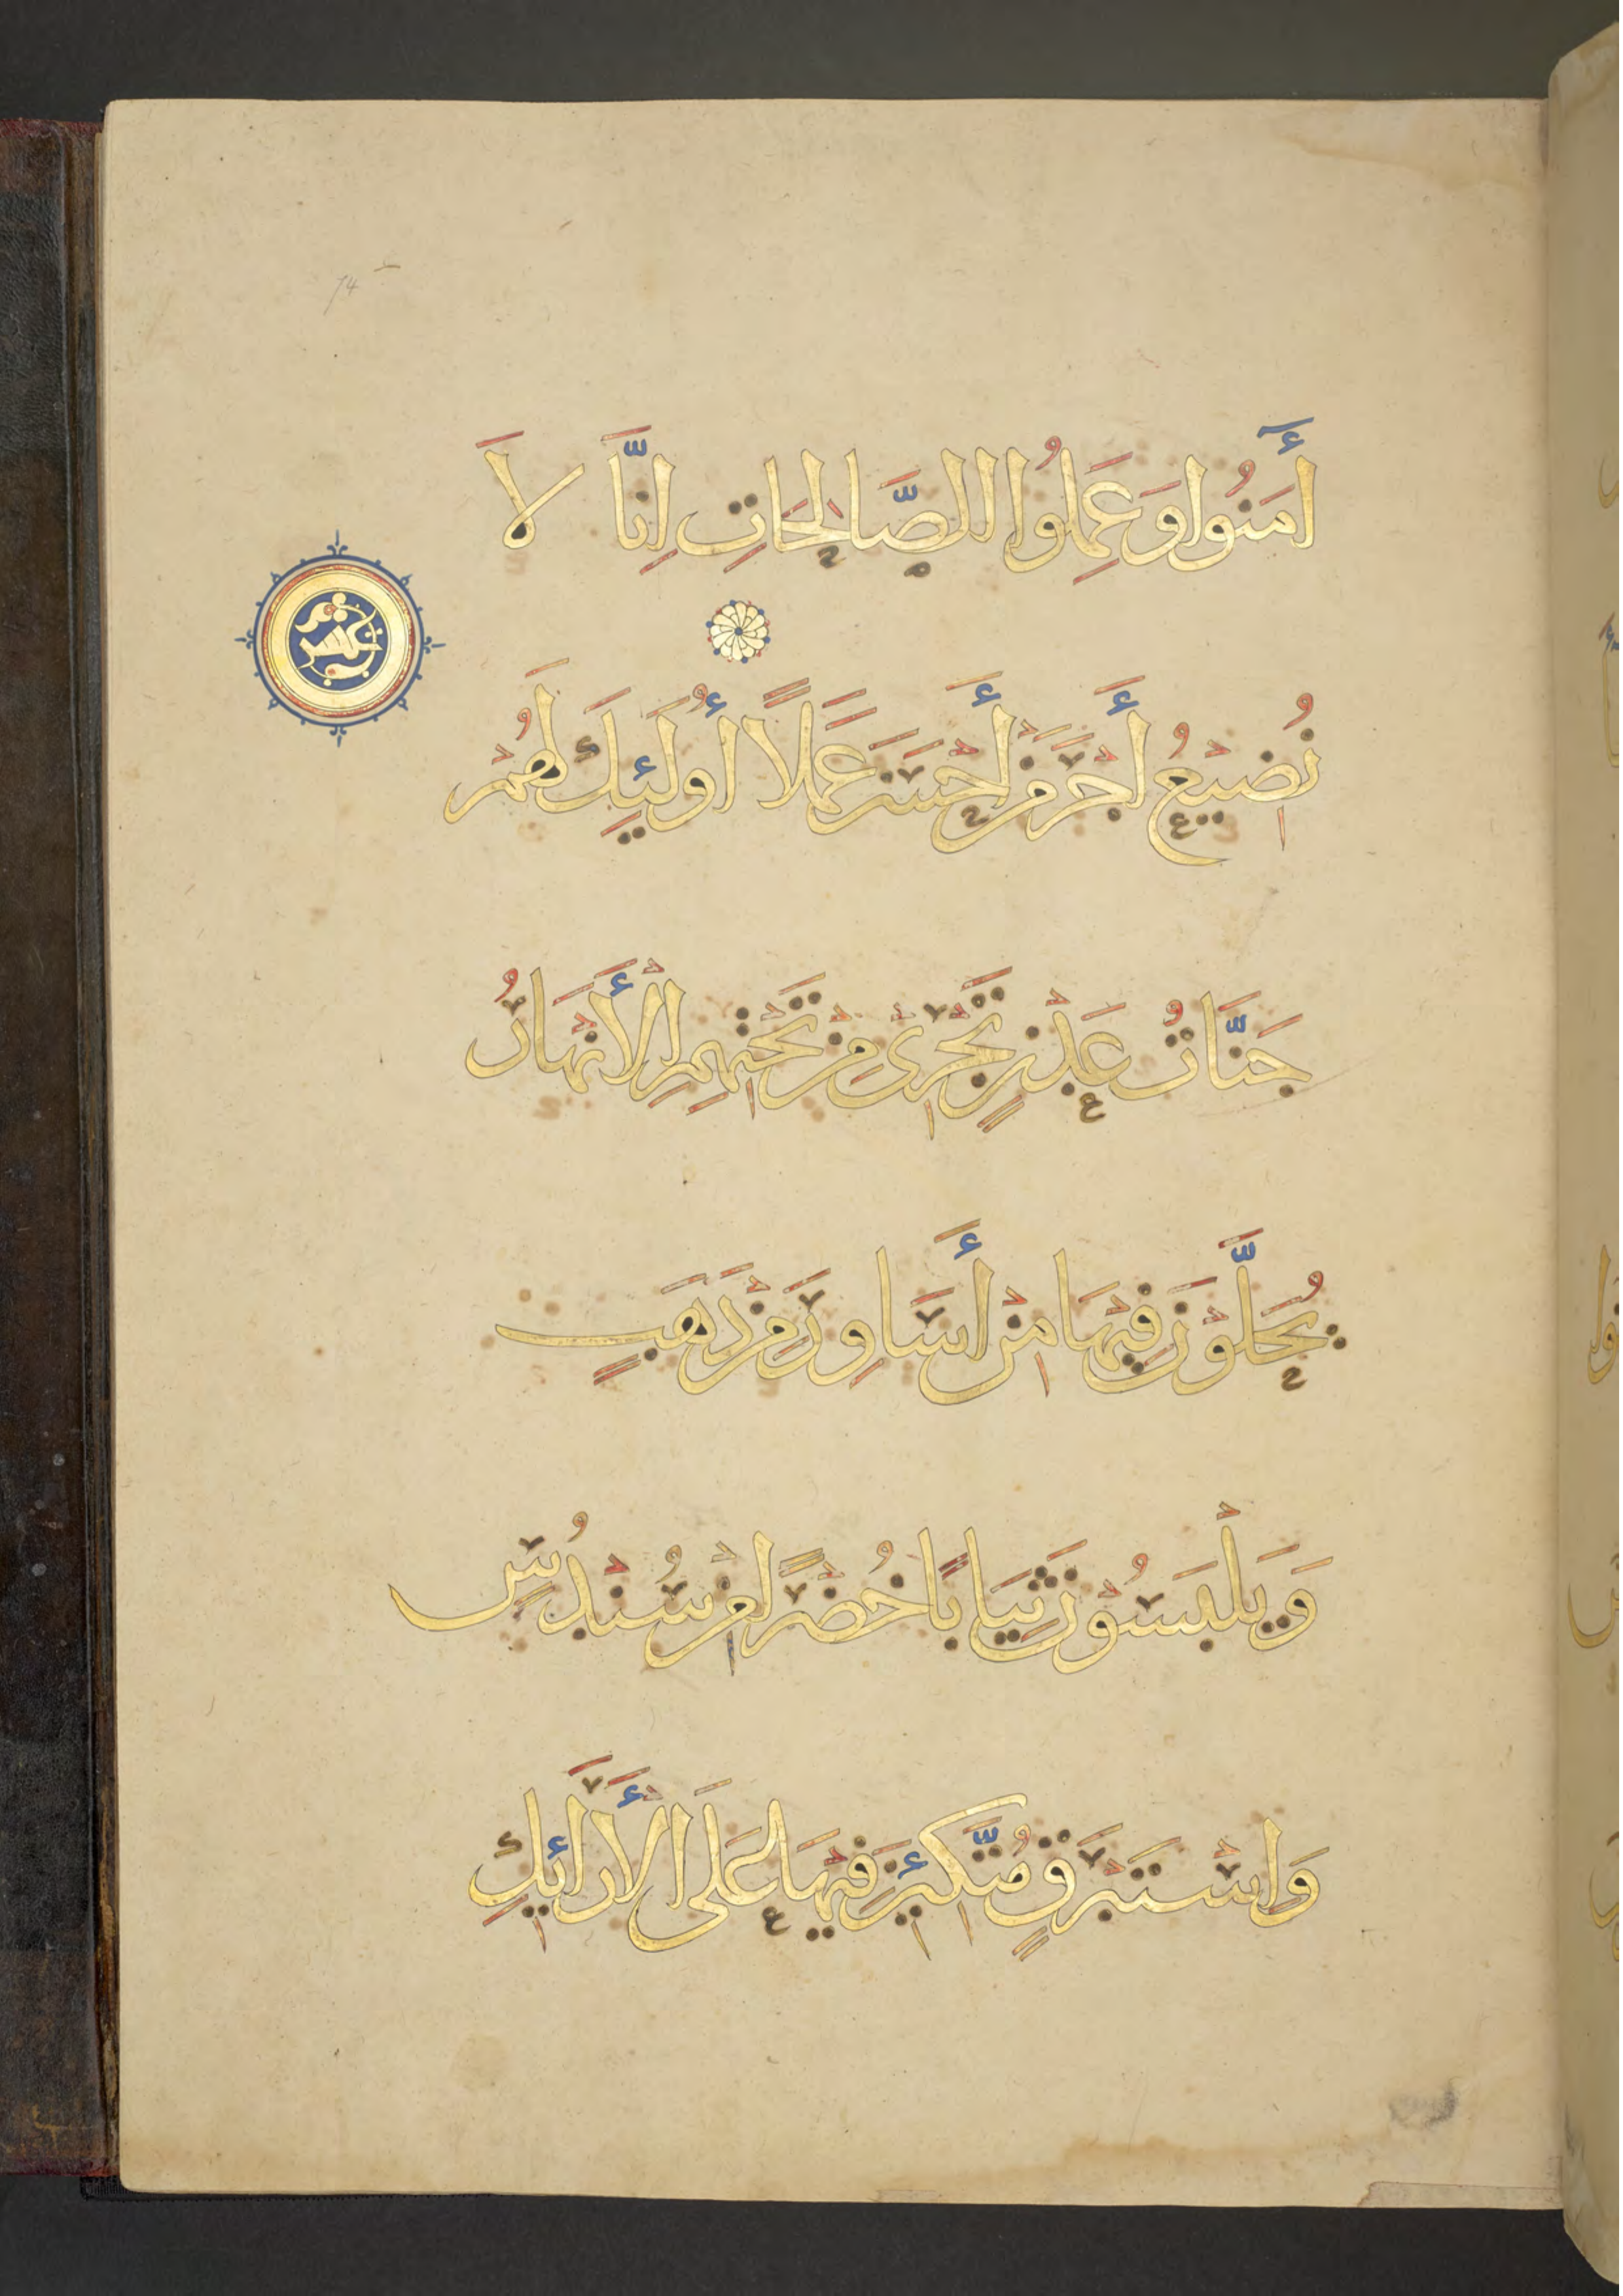 74
أَمَنُوا وَعَمِلُوا الصَّالِحَاتِ اِنَّا لَا
نُضِيْعُ أَجْرَ مَنْ أَحْسَنَ عَمَلًا أُولَئِكَ لَهُمْ
جَنَّاتُ عَدْنٍ تَجْرِىْ مِنْ تَحْتِهِمِ الْأَنْهَارُ
يُحَلَّوْنَ فِيْهَا مِنْ أَسَاوِرَ مِنْ ذَهَبٍ
وَيَلْبَسُوْنَ ثِيَابًا خُضْرًا مِنْ سُنْدُسٍ
وَاِسْتَبْرَقٍ مُتَّكِئِيْنَ فِيْهَا عَلَى الْأَرَائِكِ